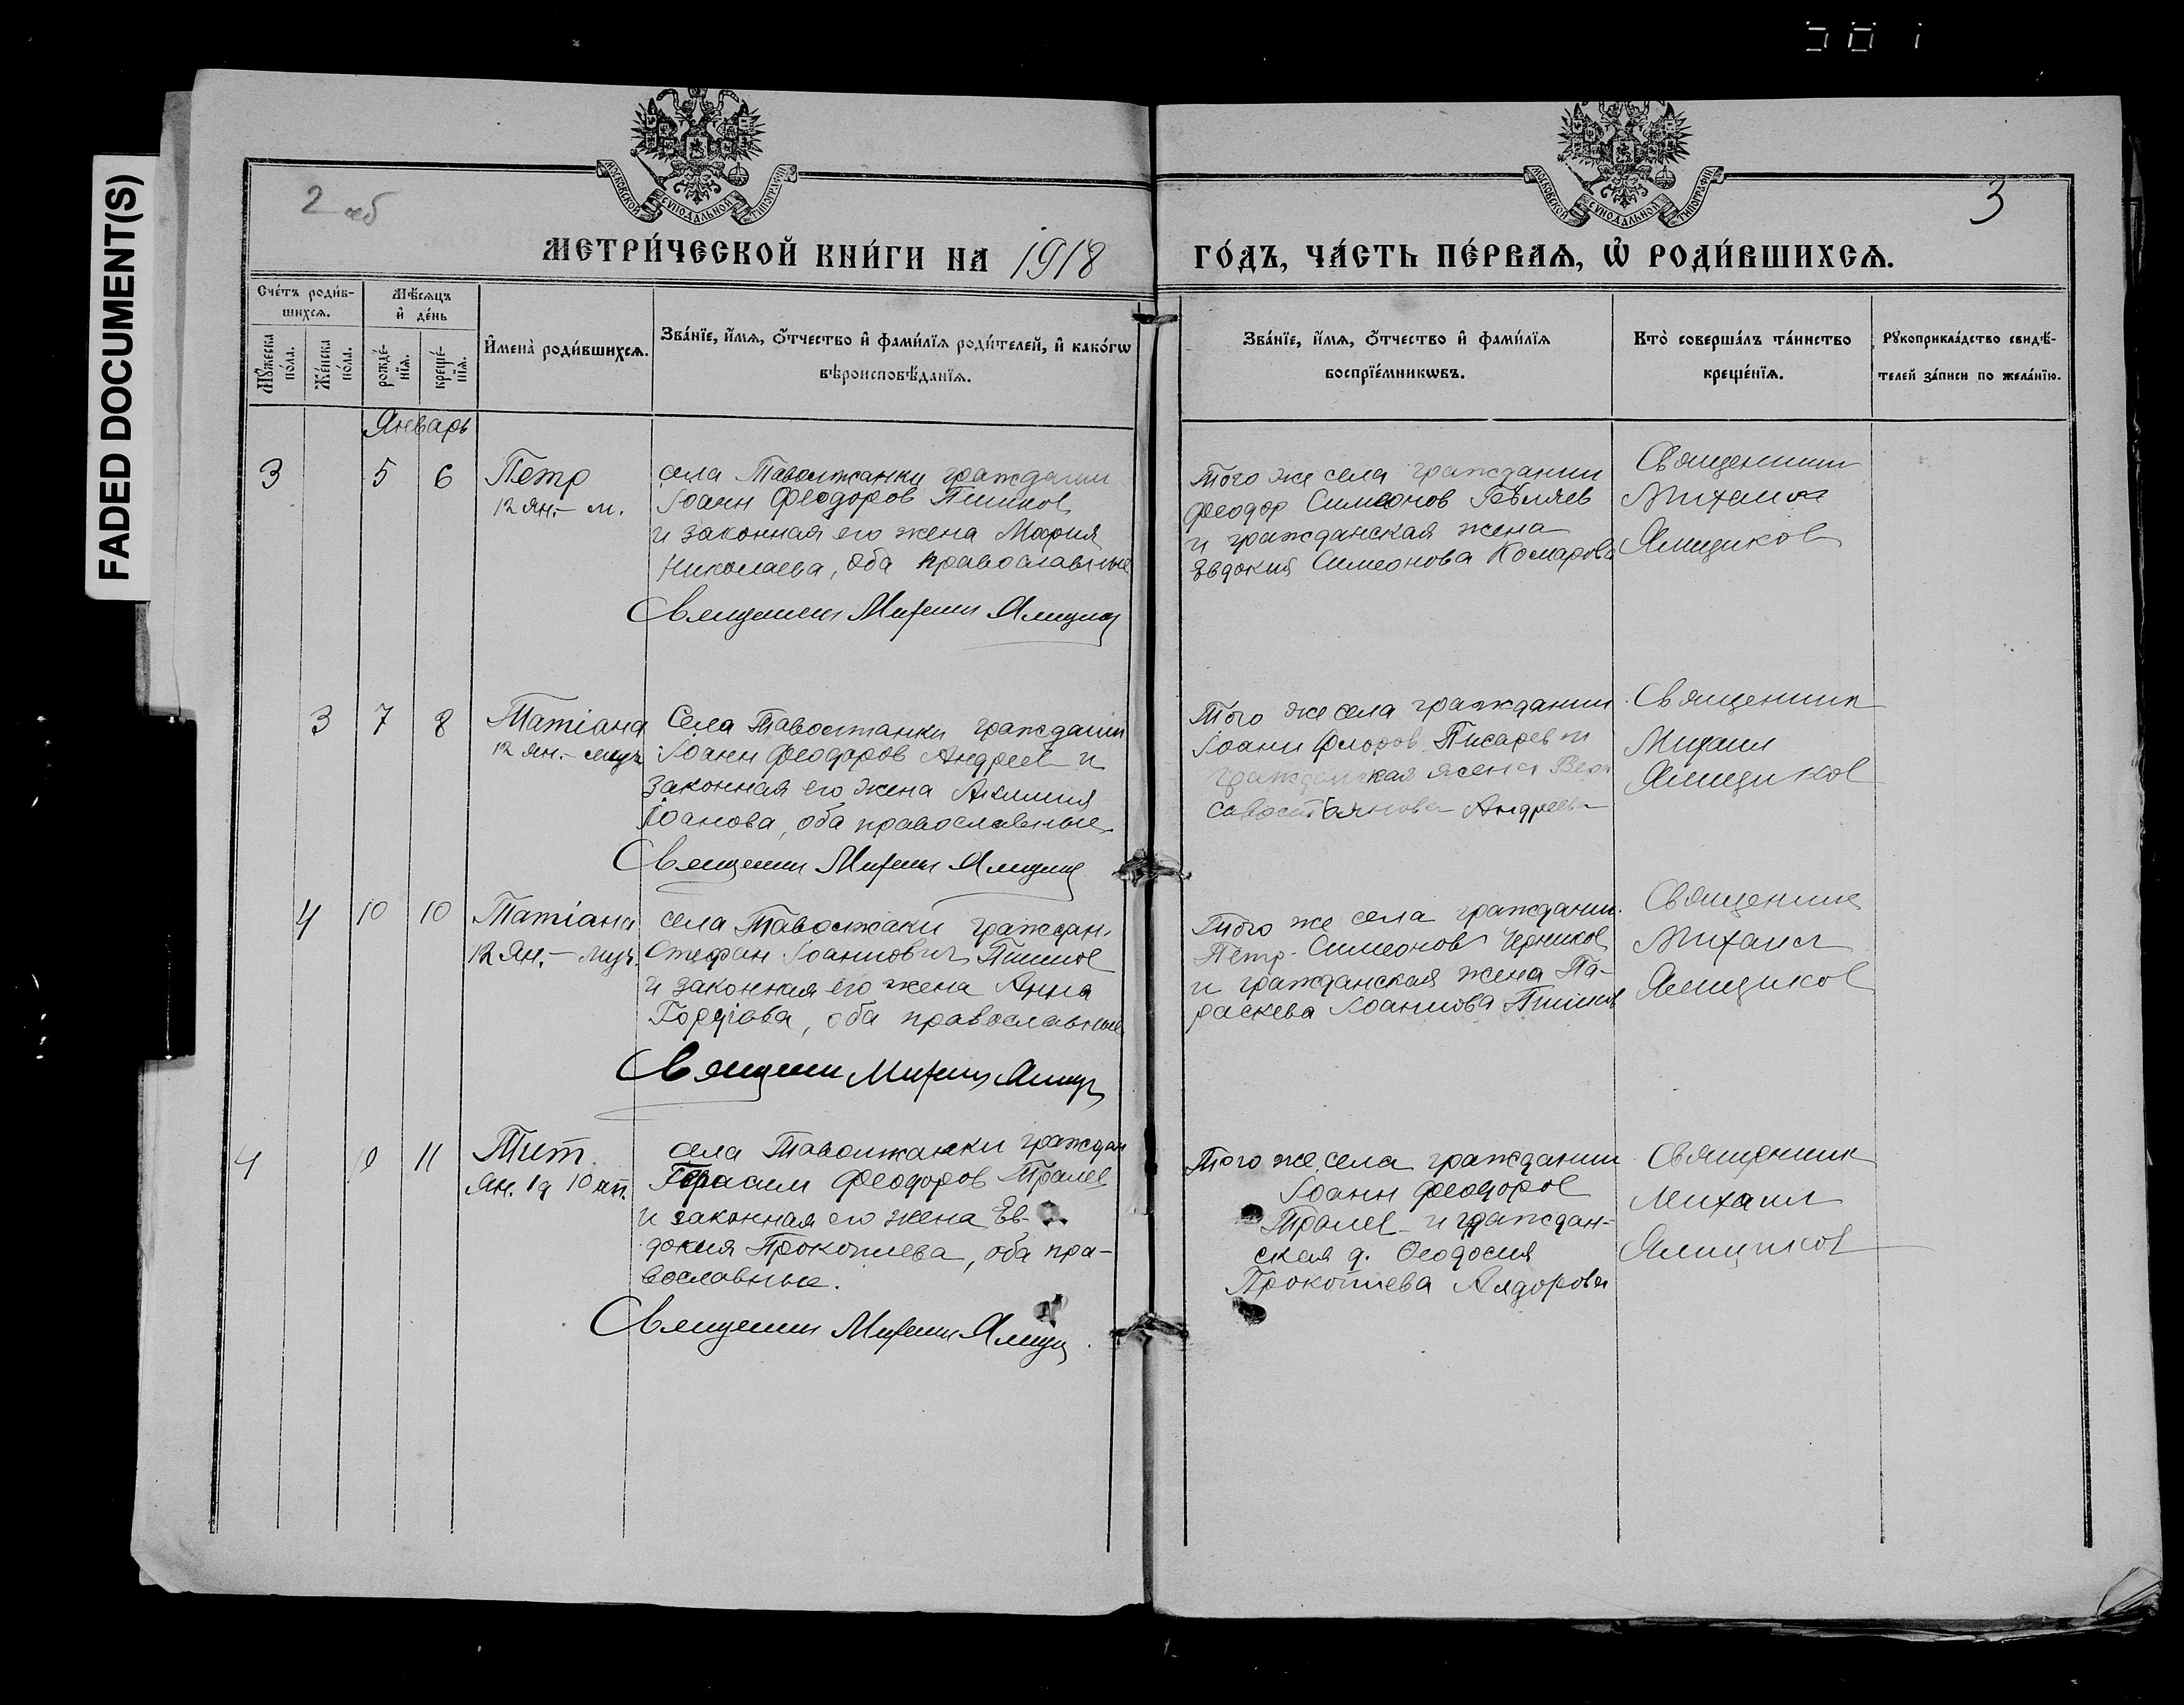 FADED DOCUMENT(S)
МОСКОВСКОЙ СѴНОДАЛЬНОЙ ТИПОГРАФІИ
МОСКОВСКОЙ СѴНОДАЛЬНОЙ ТИПОГРАФІИ
2 об
3
МЕТРИ́ЧЕСКОЙ КНИ́ГИ НА 1918
ГО́ДЪ, ЧА́СТЬ ПЕ́РВАѦ, Ѡ҆ РОДИ́ВШИХСѦ.
Сче́тъ роди́в-
шихсѧ.
Мѣ́сѧцъ
и҆ де́нь
Мꙋ́жеска
по́ла.
Же́нска
по́ла.
рожде́-
нїѧ.
креще́-
нїѧ.
И҆мена̀ роди́вшихсѧ.
Зва́нїе, и҆́мѧ, ѻ҆́тчество и҆ фами́лїѧ роди́телей, и҆ како́гѡ
вѣроисповѣ́данїѧ.
Зва́нїе, и҆́мѧ, ѻ҆́тчество и҆ фами́лїѧ
воспрїе́мникѡвъ.
Кто̀ соверша́лъ та́инство
креще́нїѧ.
Рꙋкоприкла́дство свидѣ́-
телей за́писи по жела́нїю.
Январь
3 5 6 Петр
12 Ян. – м.
села Таволжанки гражданин
Іоанн Феодоров
и законная его жена Мария
Николаева, оба православные
Священник Михаил Ямщиков
Того же села гражданин
Феодор Симеонов
и гражданская жена
Евдокия Симеонова Комарова
Священник
Михаил
Ямщиков
3 7 8 Татіана
12 Ян. – муч.
Села Таволжанки гражданин
Іоанн Феодоров Андреев и
законная его жена Акилина
Іоанова, оба православные.
Священник Михаил Ямщиков
Того же села гражданин
Іоанн Фло­ров Писарев и
гражданская жена Вера
Савостьянова Андреева
Священник
Михаил
Ямщиков
4 10 10 Татіана
12 Ян. – муч.
села Таволжаки граждан.
Стефан Іоаннович
и законная его жена Анна
Гордіова, оба православные
Священник Михаил Ямщиков
Того же села гражданин.
Петр Симеонов Черников
и гражданская жена Па-
раскева Іоаннова
Священник
Михаил
Ямщиков
4 10 11 Тит
Ян. 1 д 10 ап.
села Таволжанки граждан
Герасим Феодоров
и законная его жена Ев-
докия Прокопиева, оба пра-
вославные.
Священник Михаил Ямщиков
Того же села гражданин
Іоанн Феодоров
и граждан-
ская д. Феодосия
Прокопиева
Священник
Михаил
Ямщиков